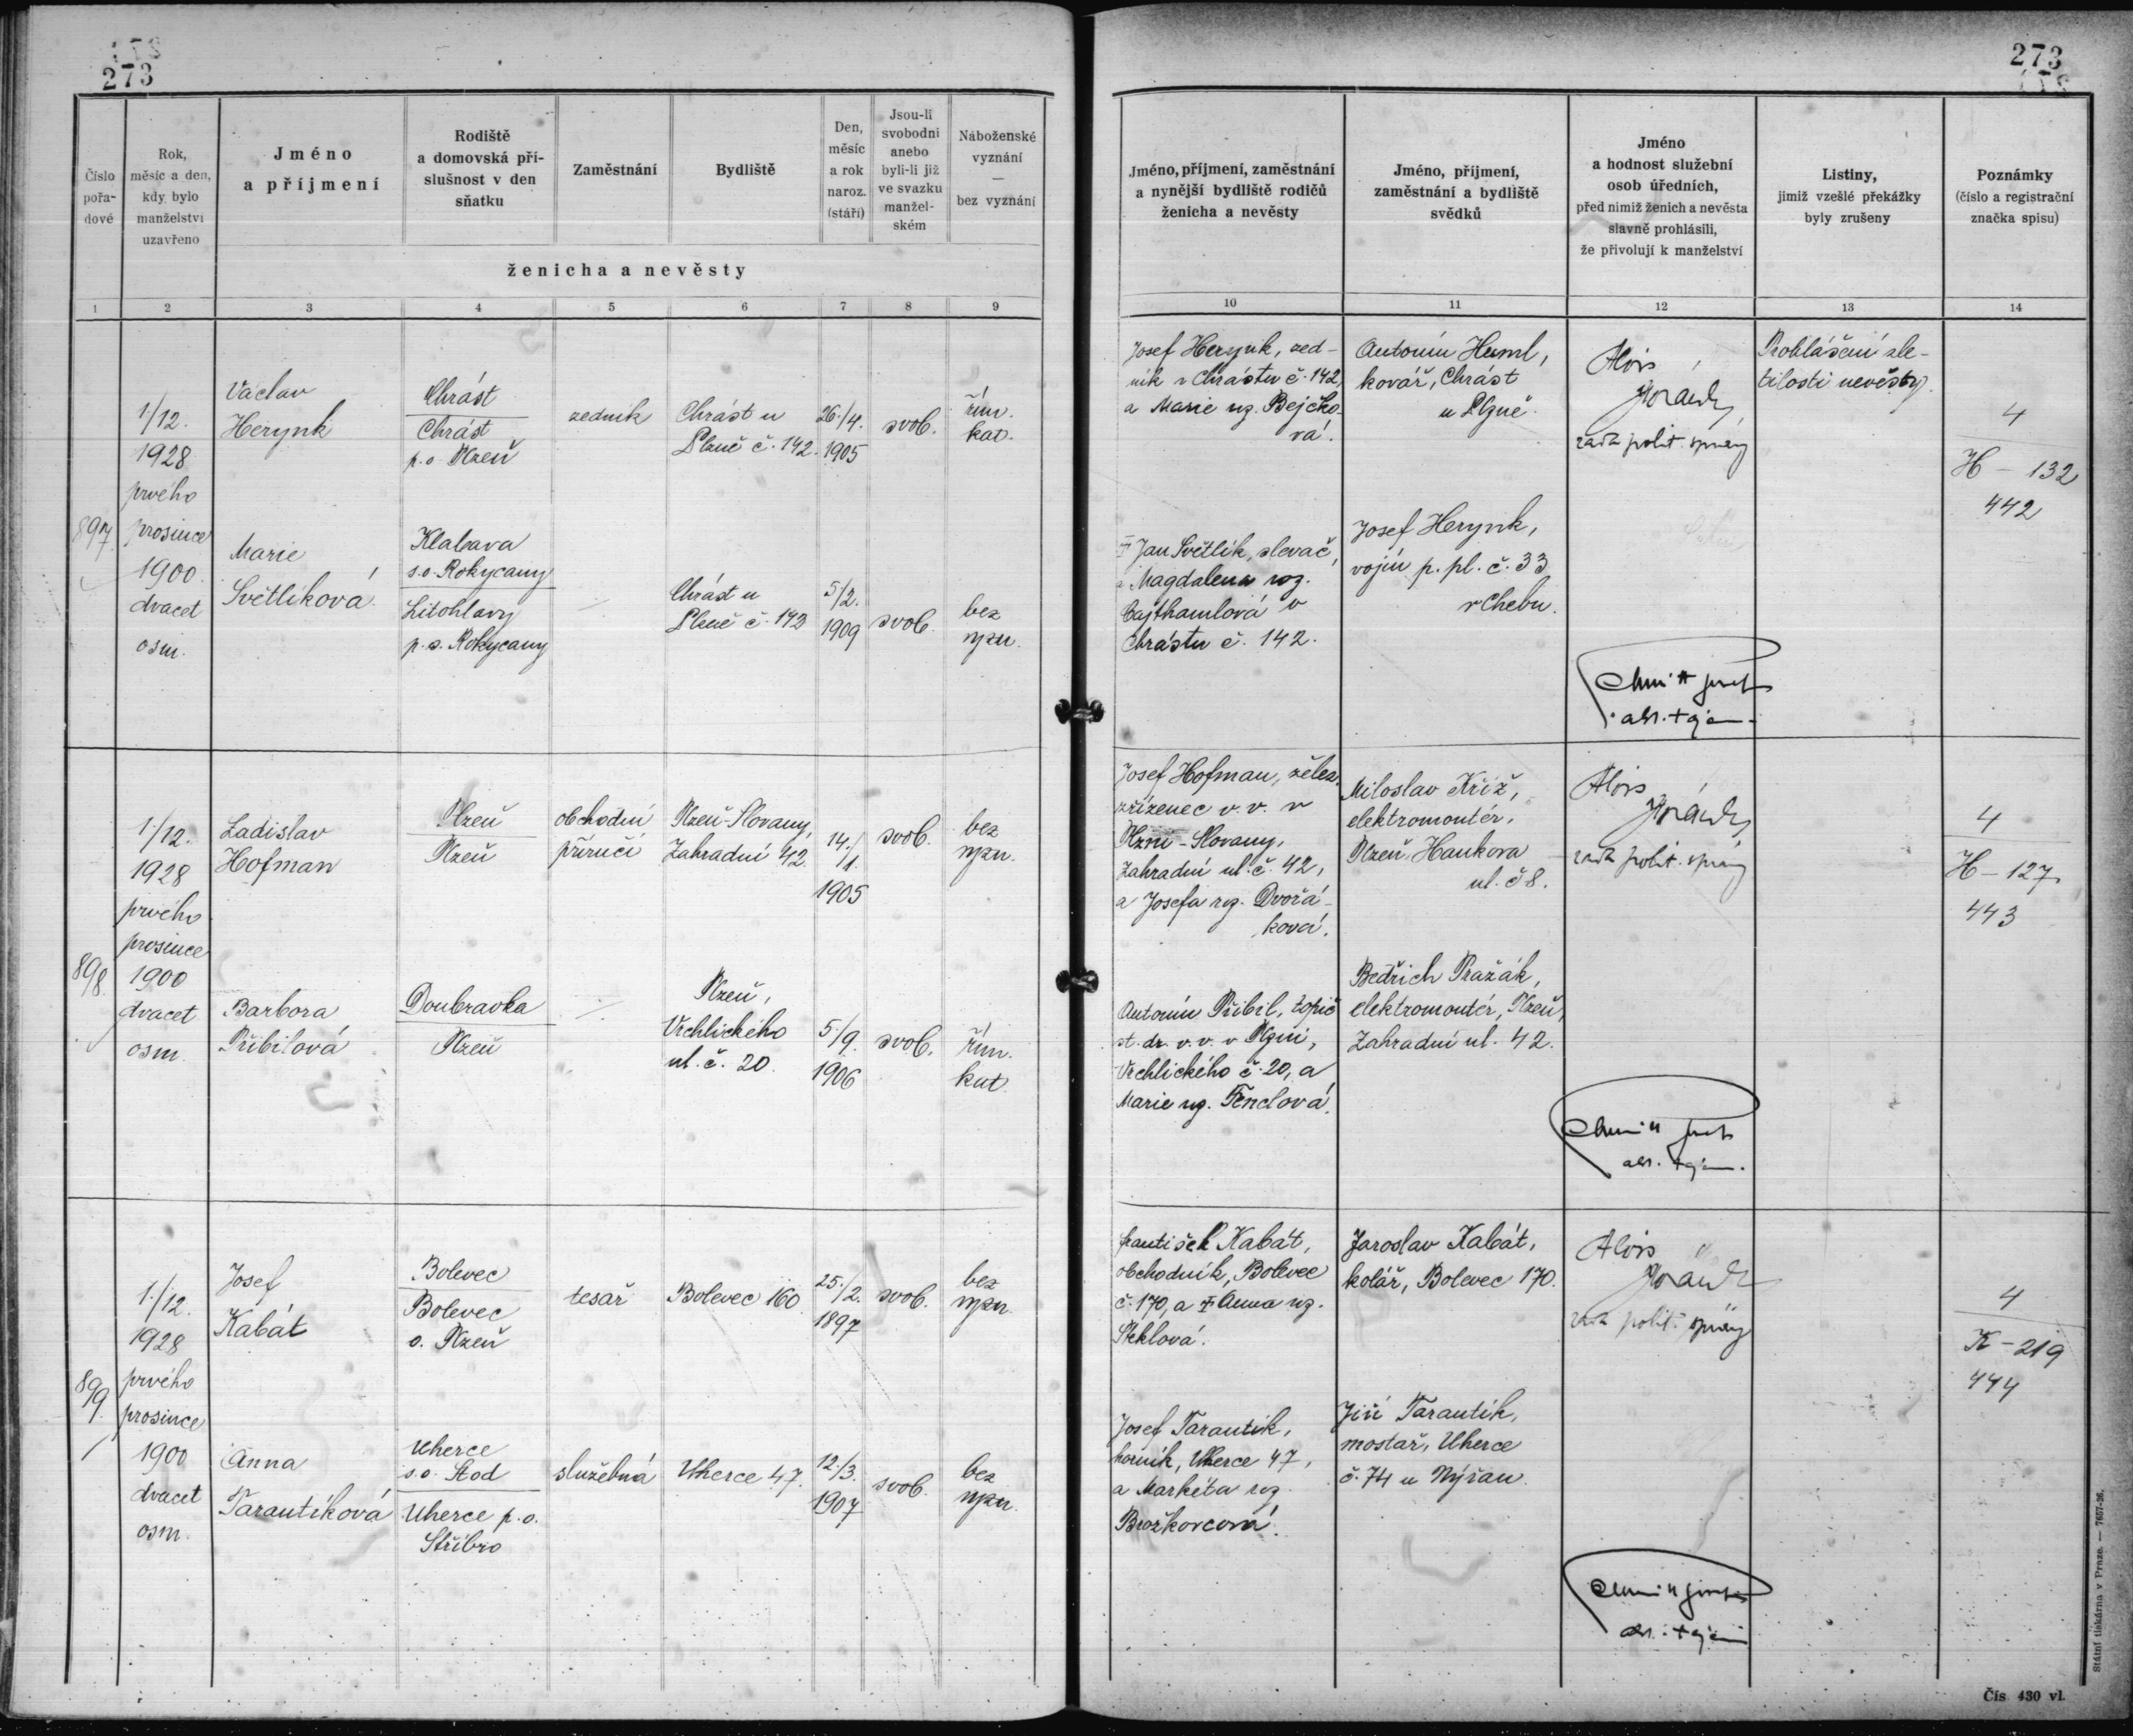 273
273
Číslo
pořa-
dové
Rok,
měsíc a den,
kdy bylo
manželství
uzavřeno
Jméno
a příjmení
Rodiště
a domovská pří-
slušnost v den
sňatku
Zaměstnání
Bydliště
Den,
měsíc
a rok
naroz.
(stáří)
Jsou-li
svobodni
anebo
byli-li již
ve svazku
manžel-
ském
Náboženské
vyznání
—
bez vyznání
ženicha a nevěsty
Jméno, příjmení, zaměstnání
a nynější bydliště rodičů
ženicha a nevěsty
Jméno, příjmení,
zaměstnání a bydliště
svědků
Jméno
a hodnost služební
osob úředních,
před nimiž ženich a nevěsta
slavně prohlásili,
že přivolují k manželství
Listiny,
jimiž vzešlé překážky
byly zrušeny
Poznámky
(číslo a registrační
značka spisu)
1 2 3 4 5 6 7 8 9 10 11 12 13 14
897
1./12.
1928
prvého
prosince
1900
dvacet
osm.
Václav
Herynk
Chrást
Chrást
p. o. Plzeň
zedník
Chrást u
Plzně č. 142.
26./4.
1905
svob.
řím.
kat.
Josef Herynk, zed-
ník v Chrástu č. 142,
a Marie roz. Bejčko-
vá.
Antonín Huml,
kovář, Chrást
u Plzně.
Alois
rada polit. správy
Prohlášení zle-
tilosti nevěsty.
4
H – 132
442
Marie
Světlíková
Klabava
s. o. Rokycany
Litohlavy
p. o. Rokycany
Chrást u
Plzně č. 142
5./2.
1909
svob.
bez
vyzn.
† Jan Světlík, slevač,
a Magdalena roz.
Cajthamlová v
Chrástu č. 142.
Josef Herynk,
vojín p. pl. č. 33
v Chebu.
898
1./12.
1928
prvého
prosince
1900
dvacet
osm.
Ladislav
Hofman
Plzeň
Plzeň
obchodní
příručí
Plzeň-Slovany,
Zahradní 42.
14./
1.
1905
svob.
bez
vyzn.
Josef Hofman, želez.
zřízenec v. v. v
Plzni - Slovany,
Zahradní ul. č. 42,
a Josefa roz. Dvořá-
ková.
Miloslav Kříž,
elektromontér,
Plzeň, Hankova
ul. č 8.
Alois
rada polit. správy
4
H – 127
443
Barbora
Přibilová
Doubravka
Plzeň
Plzeň,
Vrchlického
ul. č. 20.
5./9.
1906
svob.
řím.
kat.
Antonín Přibil, topič
st. dr. v. v. v Plzni,
Vrchlického č. 20, a
Marie roz. Fenclová.
Bedřich Pražák,
elektromontér, Plzeň,
Zahradní ul. 42.
899
1./12.
1928
prvého
prosince
1900
dvacet
osm.
Josef
Kabát
Bolevec
Bolevec
o. Plzeň
tesař
Bolevec 160
25./2.
1897
svob.
bez
vyzn.
František Kabát,
obchodník, Bolevec
č. 170, a † Anna roz.
Steklová.
Jaroslav Kabát,
kolář, Bolevec 170.
Alois
rada polit. správy
4
K – 219
444
Anna
Tarantíková
Uherce
s. o. Stod
Uherce p. o.
Stříbro
služebná
Uherce 47.
12./3.
1907
svob.
bez
vyzn.
Josef Tarantík,
horník, Uherce 47,
a Markéta roz.
Brožkovcová.
Jiří Tarantík,
mostař, Uherce
č. 74 u Nýřan.
Státní tiskárna v Praze. — 7657-26.
Čís 430 vl.